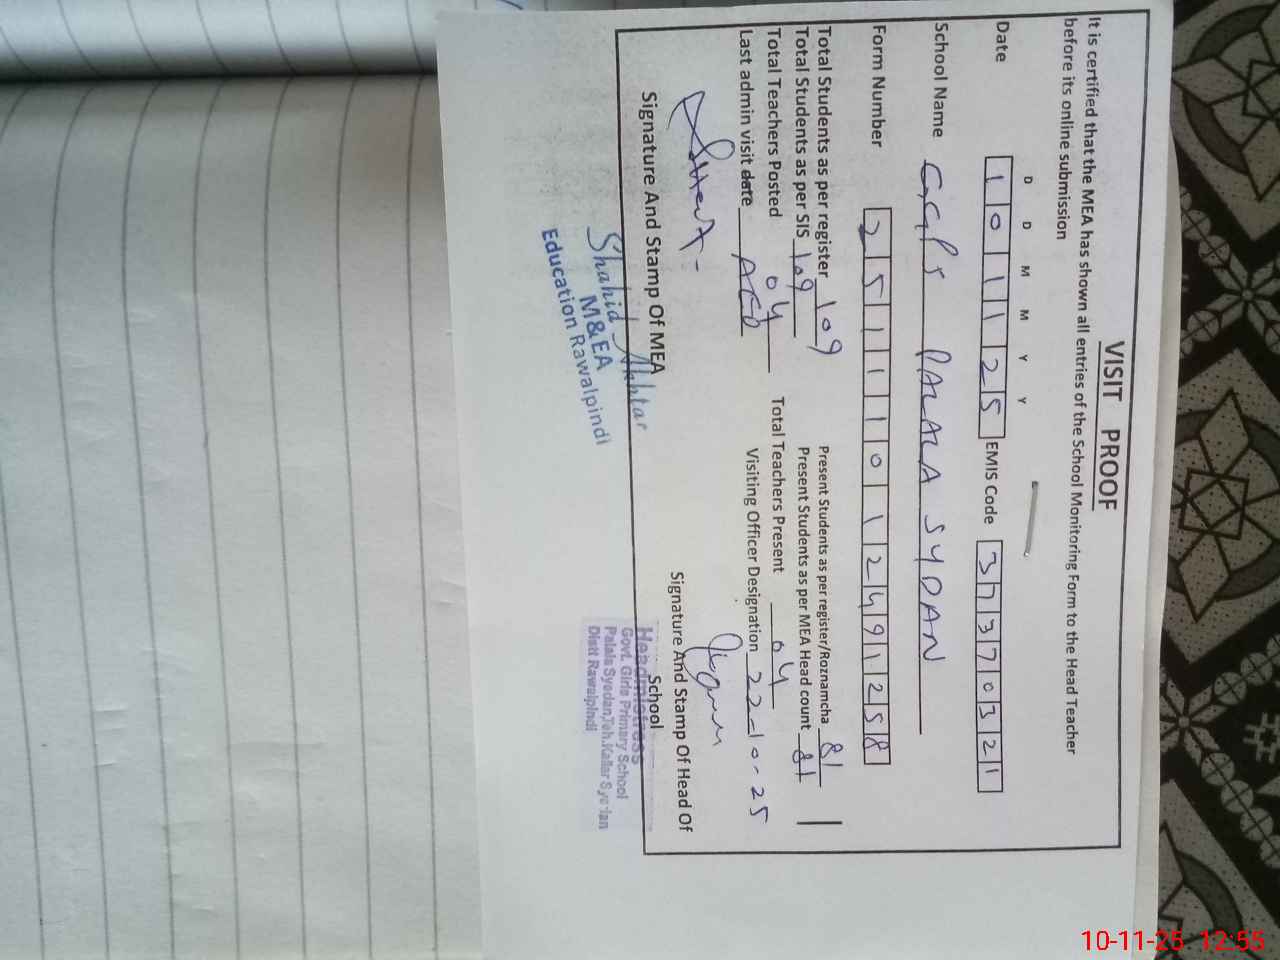 VISIT PROOF
It is certified that the MEA has shown all entries of the School Monitoring Form to the Head Teacher
before its online submission
D D M M Y Y
Date 1 0 1 1 2 5 EMIS Code 3 7 3 7 0 3 2 1
School Name GGPS PALALA SYDAN
Form Number 2 5 1 1 1 0 1 2 4 9 1 2 5 8
Total Students as per register 109 Present Students as per register/Roznamcha 81
Total Students as per SIS 109 Present Students as per MEA Head count 81
Total Teachers Posted 04 Total Teachers Present 04
Last admin visit date AEO Visiting Officer Designation 22-10-25
Signature And Stamp Of MEA
Signature And Stamp Of Head Of
School
Shahid Akhtar
M&EA
Education Rawalpindi
Headmistress
Govt. Girls Primary School
Palala Syedan,Teh.Kallar Syedan
Distt Rawalpindi
10-11-25 12:55